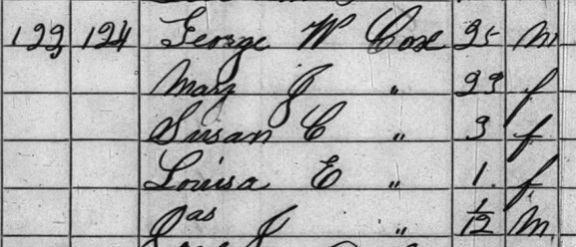 123 124 George W Cox 25 m
Mary J " 23 f
Susan C " 3 f
Louisa E " 1 f
Jas J " 1/12 m